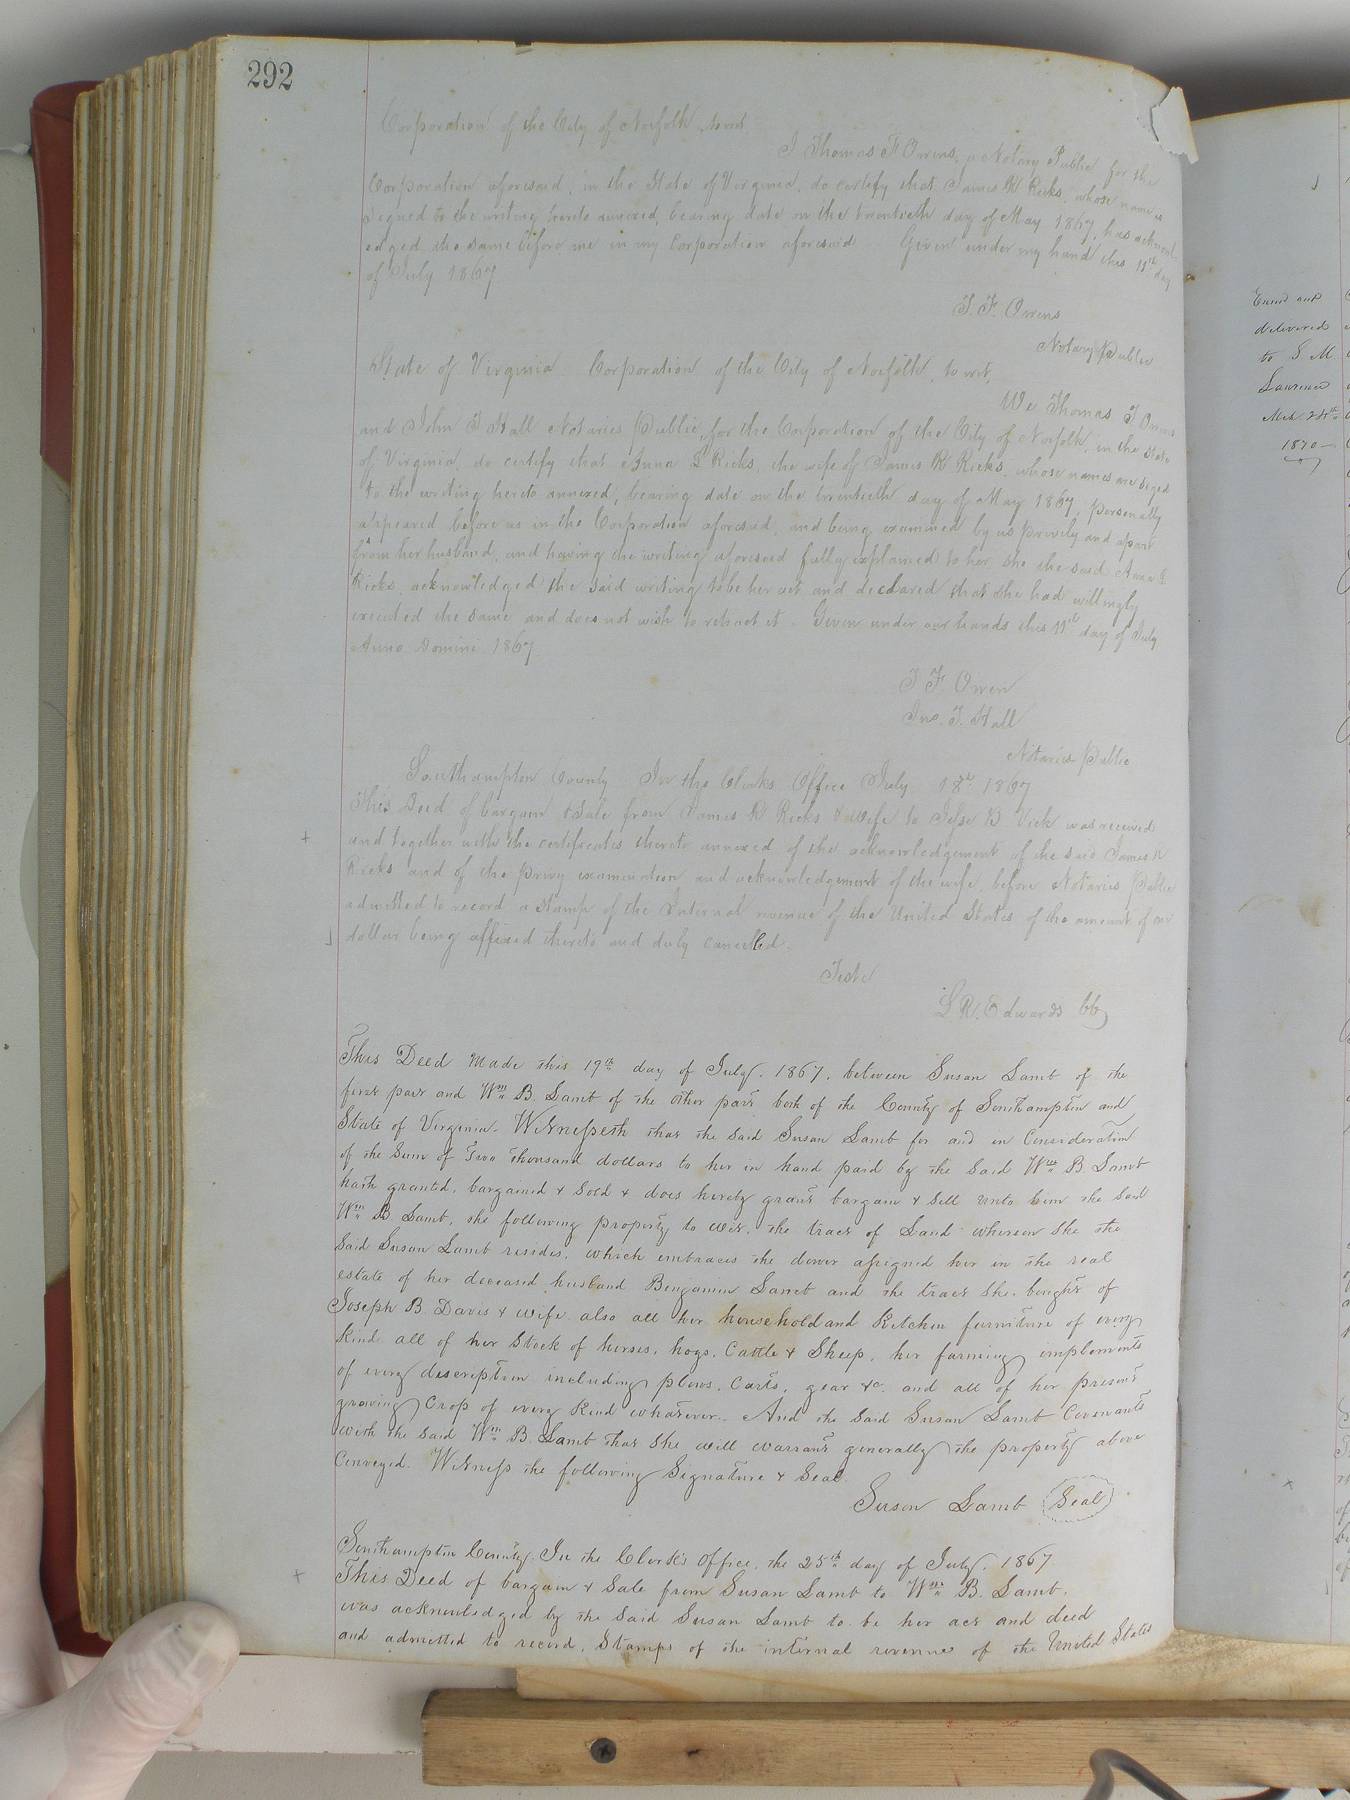 292
Corporation of the City of Norfolk, to wit
I Thomas F Owens, a Notary Public for the
Corporation aforesaid, in the State of Virginia, do certify that James R Ricks, whose name is
signed to the writing hereto annexed, bearing date on the twentieth day of May 1867, has acknowl-
edged the same before me in my Corporation aforesaid Given under my hand this 11th day
of July 1867
T. F. Owens
Notary Public
State of Virginia Corporation of the City of Norfolk, to wit,
We Thomas F Owens
and John T Hall Notaries Public, for the Corporation of the City of Norfolk, in the State
of Virginia, do certify that Anna L Ricks, the wife of James R Ricks, whose names are siged
to the writing hereto annexed, bearing date on the twentieth day of May 1867, personally
appeared before us in the Corporation aforesaid, and being examined by us privily and apart
from her husband, and having the writing aforesaid fully explained to her she the said Anna L
Ricks, acknowledged the said writing to be her act and declared that she had willingly
executed the same and does not wish to retract it. Given under our hands this 11th day of July
Anno Domini 1867
T F. Owen
Jno. T. Hall
Notaries Public
Southampton County In the Clerks Office July 18th 1867
This Deed of bargain & Sale from James R Ricks & wife to Jesse B Vick was received
and together with the certificates thereto annexed of the acknowledgement of the said James R
Ricks and of the privy examination and acknowledgement of the wife, before Notaries Public
admitted to record a stamp of the Internal revenue of the United States of the amount of one
dollar being affixed thereto and duly cancelled.
Teste
L. R. Edwards CC
This Deed made this 19th day of July. 1867. between Susan Lamb of the
first part and Wm B. Lamb of the other part both of the County of Southampton and
State of Virginia. Witnesseth that the said Susan Lamb for and in Consideration
of the Sum of Two thousand dollars to her in hand paid by the said Wm B. Lamb
hath granted, bargained & sold & does hereby grant bargain & sell unto him the said
Wm B Lamb, the following property to wit. the tract of Land whereon she the
said Susan Lamb resides, which embraces the dower assigned her in the real
estate of her deceased husband Benjamin Lamb and the tract she bought of
Joseph B Davis & wife also all her household and Kitchen furniture of every
kind all of her Stock of horses, hogs, Cattle & Sheep, her farming implements
of every description including plows, Carts, gear &c. and all of her present
growing Crop of every kind whatever. And the said Susan Lamb Covenants
with the said Wm B. Lamb that she will warrant generally the property above
Conveyed. Witness the following Signature & Seal
Susan Lamb Seal
Southampton County. In the Clerk's Office, the 25th day of July. 1867
This Deed of bargain & Sale from Susan Lamb to Wm B. Lamb.
was acknowledged by the said Susan Lamb to be her act and deed
and admitted to record. Stamps of the internal revenue of the United States
Exmd and
delivered
to S M
Lawrence
Mch 28th
1870